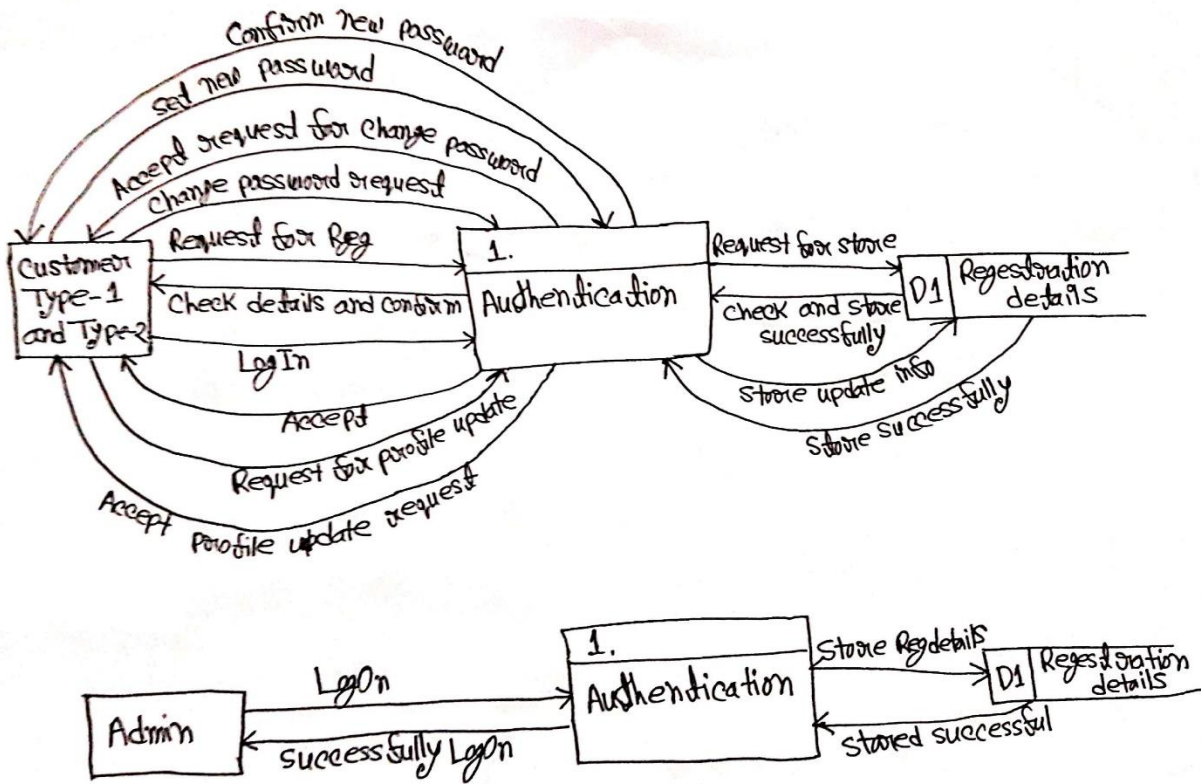 Confirm new password
set new password
Accept request for change password
change password request
Request for Reg
Customer
Type-1
and Type-2
Check details and confirm
LogIn
Accept
Request for profile update
Accept profile update request
1.
Authentication
Request for store
check and store
successfully
D1
Regestration
details
Store update info
Store successfully
Admin
LogOn
successfully LogOn
1.
Authentication
Store Regdetails
Stored successful
D1
Regestration
details